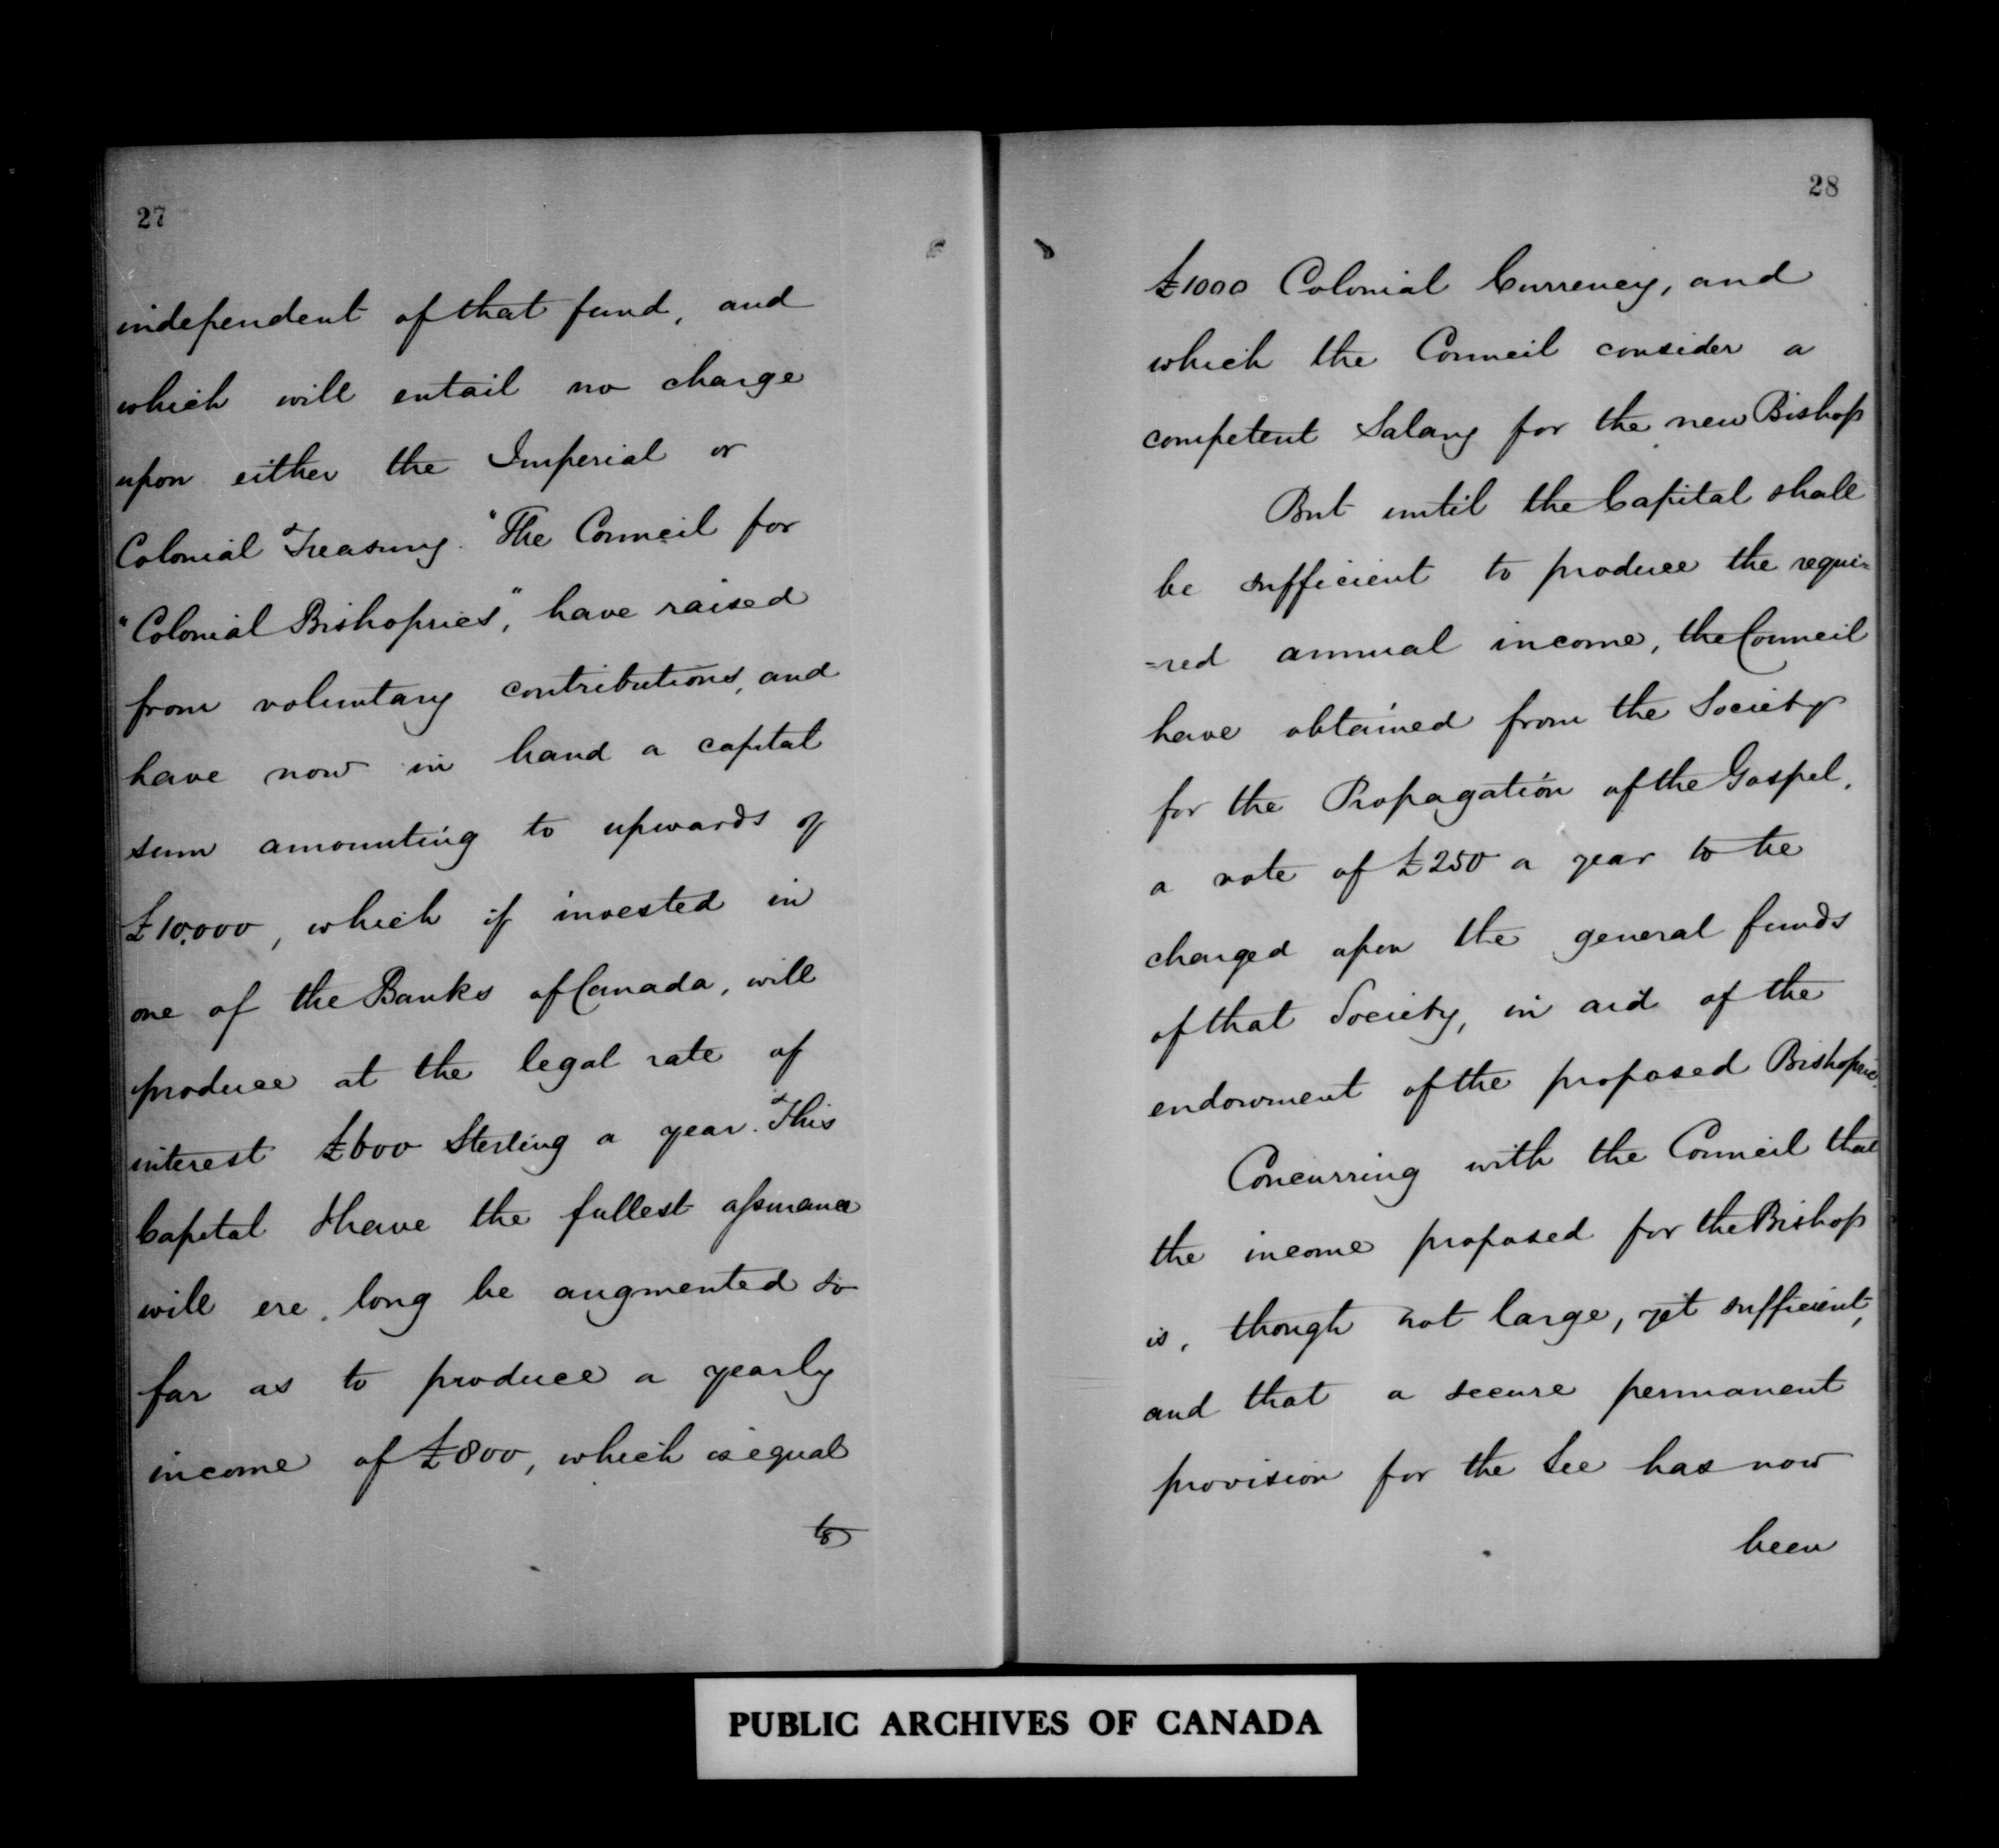 27
independent of that fund, and
which will entail no charge
upon either the Imperial or
Colonial Treasury. "The Council for
"Colonial Bishoprics", have raised
from voluntary contributions, and
have now in hand a capital
sum amounting to upwards of
£10,000, which if invested in
one of the Banks of Canada, will
produce at the legal rate of
interest £600 Sterling a year. This
Capital I have the fullest assurance
will ere long be augmented so
far as to produce a yearly
income of £800, which is equal
to
28
£1000 Colonial Currency, and
which the Council consider a
competent Salary for the new Bishop
But until the Capital shall
be sufficient to produce the requi=
=red annual income, the Council
have obtained from the Society
for the Propagation of the Gospel,
a vote of £250 a year to be
charged upon the general funds
of that Society, in aid of the
endowment of the proposed Bishopric.
Concurring with the Council that
the income proposed for the Bishop
is, though not large, yet sufficient,
and that a secure permanent
provision for the See has now
been
PUBLIC ARCHIVES OF CANADA